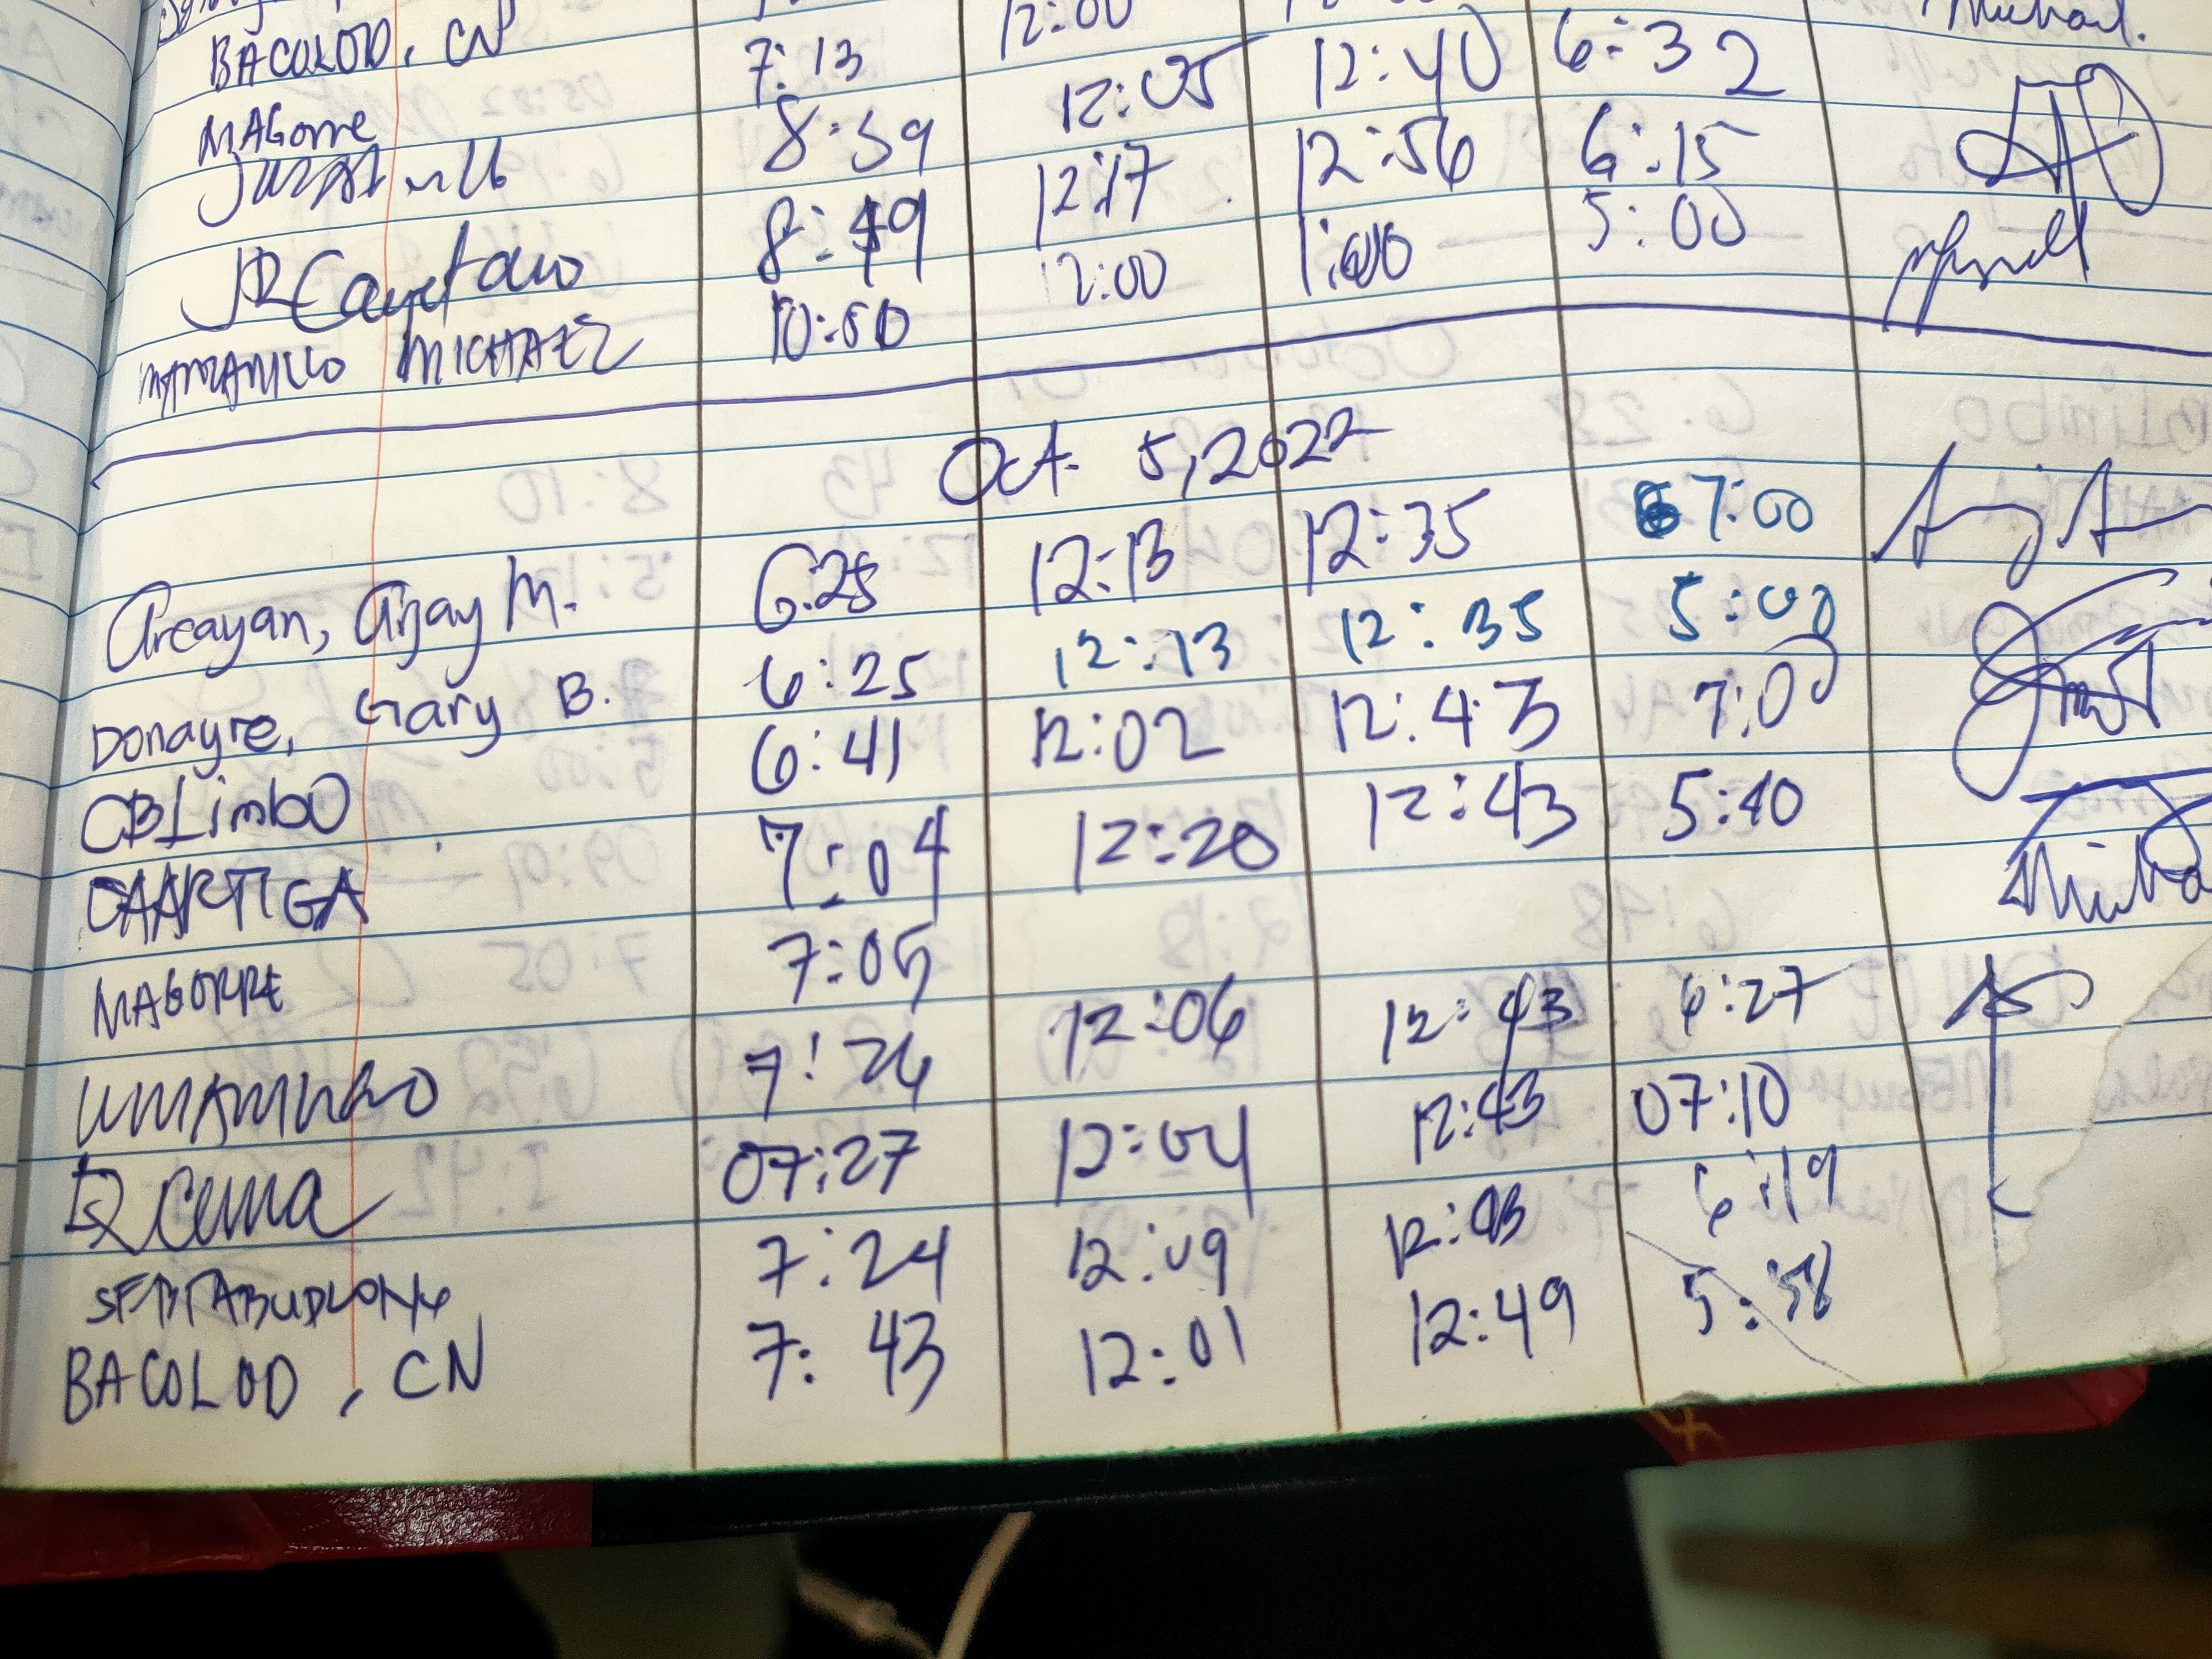 12:00 Michael.
BACOLOD, CN 7:13 12:05 12:40 6:32
MAGORRE 8:59 12:17 12:56 6:15
8:49 12:00 1:00 5:00
JR Cayetano
MANZANILLO MICHAEL 10:50
Oct. 5, 2022
Arcayan, Arjay M. 6:25 12:13 12:35 7:00
Donayre, Gary B. 6:25 12:13 12:35 5:00
CBLimbo 6:41 12:02 12:43 7:00
CAARTIGA 7:04 12:20 12:43 5:40
MAGORRE 7:05
7:26 12:06 12:43 6:27
07:27 12:04 12:43 07:10
7:24 12:09 12:43 6:19
BACOLOD, CN 7:43 12:01 12:49 5:58